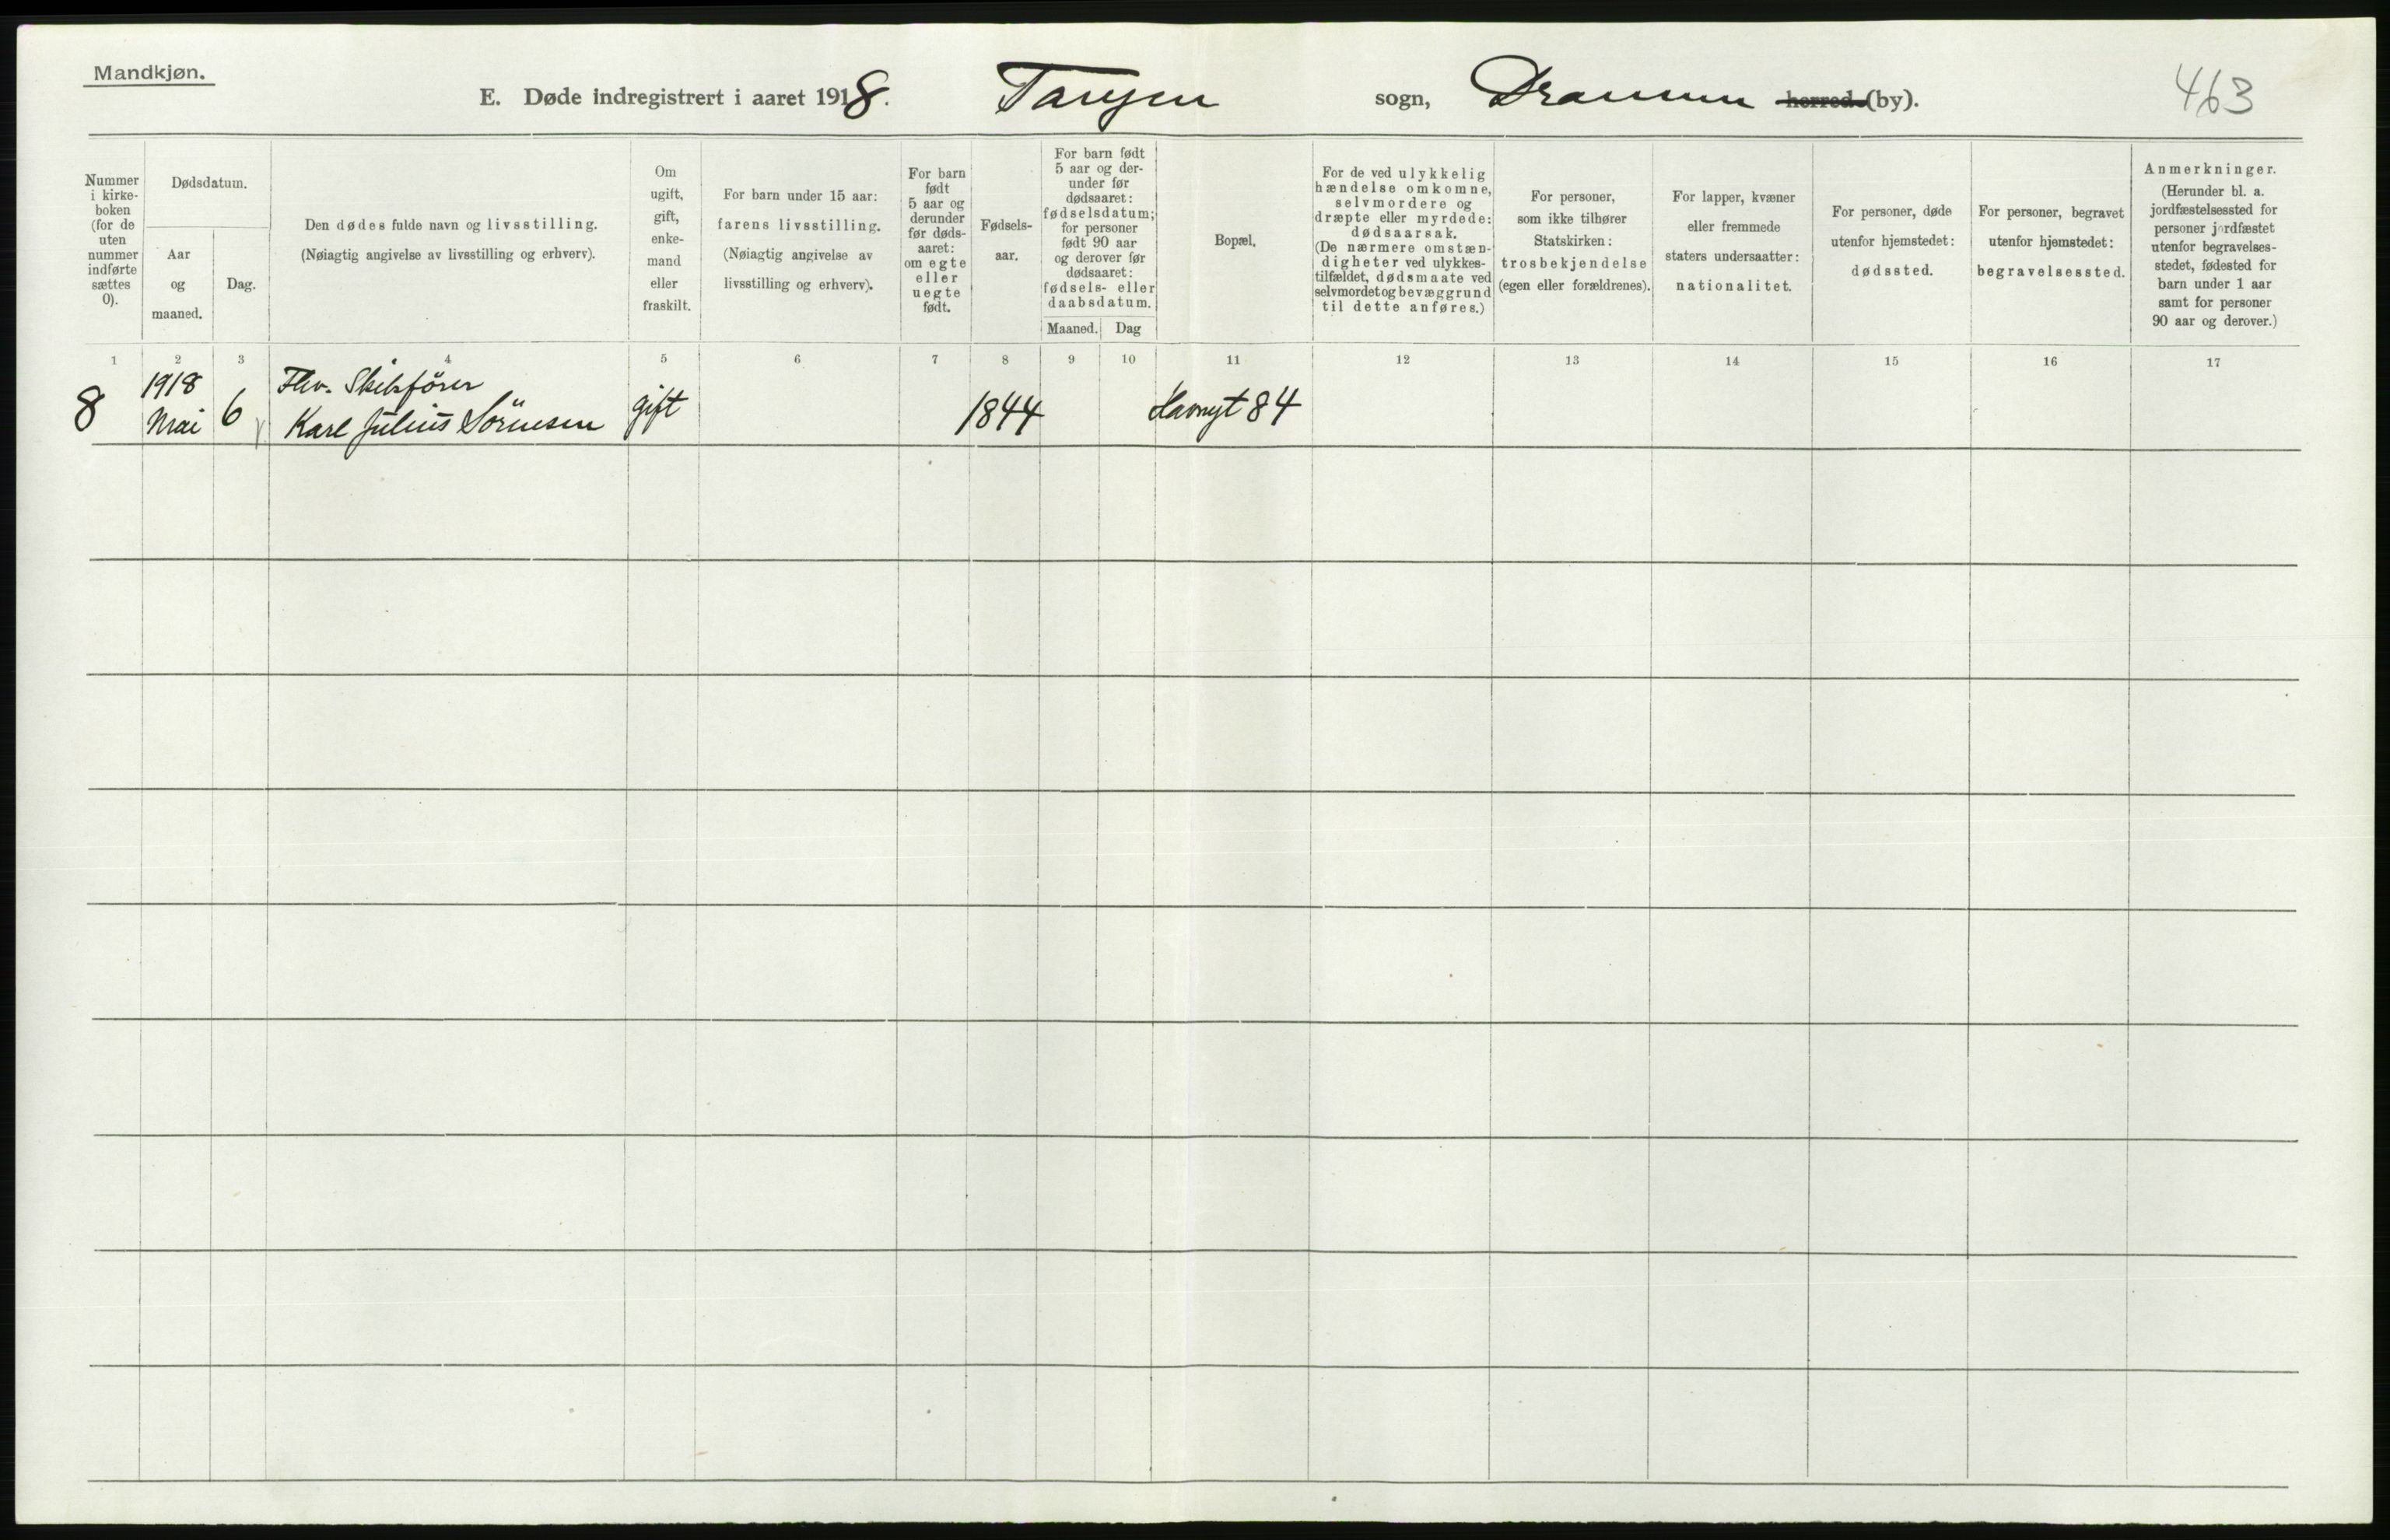 Mandkjøn.
E. Døde indregistrert i aaret 1918. Tangen sogn, Drammen herred (by).
463
Nummer
i kirke-
boken
(for de
uten
nummer
indførte
sættes
0).
Dødsdatum.
Aar
og
maaned.
Dag.
Den dødes fulde navn og livsstilling.
(Nøiagtig angivelse av livsstilling og erhverv).
Om
ugift,
gift,
enke-
mand
eller
fraskilt.
For barn under 15 aar:
farens livsstilling.
(Nøiagtig angivelse av
livsstilling og erhverv).
For barn
født
5 aar og
derunder
før døds-
aaret:
om egte
eller
uegte
født.
Fødsels-
aar.
For barn født
5 aar og der-
under før
dødsaaret:
fødselsdatum;
for personer
født 90 aar
og derover før
dødsaaret:
fødsels- eller
daabsdatum.
Maaned.
Dag
Bopæl.
For de ved ulykkelig
hændelse omkomne,
selvmordere og
dræpte eller myrdede:
dødsaarsak.
(De nærmere omstæn-
digheter ved ulykkes-
tilfældet, dødsmaate ved
selvmordet og bevæggrund
til dette anføres.)
For personer,
som ikke tilhører
Statskirken:
trosbekjendelse
(egen eller forældrenes).
For lapper, kvæner
eller fremmede
staters undersaatter:
nationalitet.
For personer, døde
utenfor hjemstedet:
dødssted.
For personer, begravet
utenfor hjemstedet:
begravelsessted.
Anmerkninger.
(Herunder bl. a.
jordfæstelsessted for
personer jordfæstet
utenfor begravelses-
stedet, fødested for
barn under 1 aar
samt for personer
90 aar og derover.)
1 2 3 4 5 6 7 8 9 10 11 12 13 14 15 16 17
1918 Fhv. Skibsförer
8 Mai 6 Karl Julius Sörensen gift 1844 Havngt 84